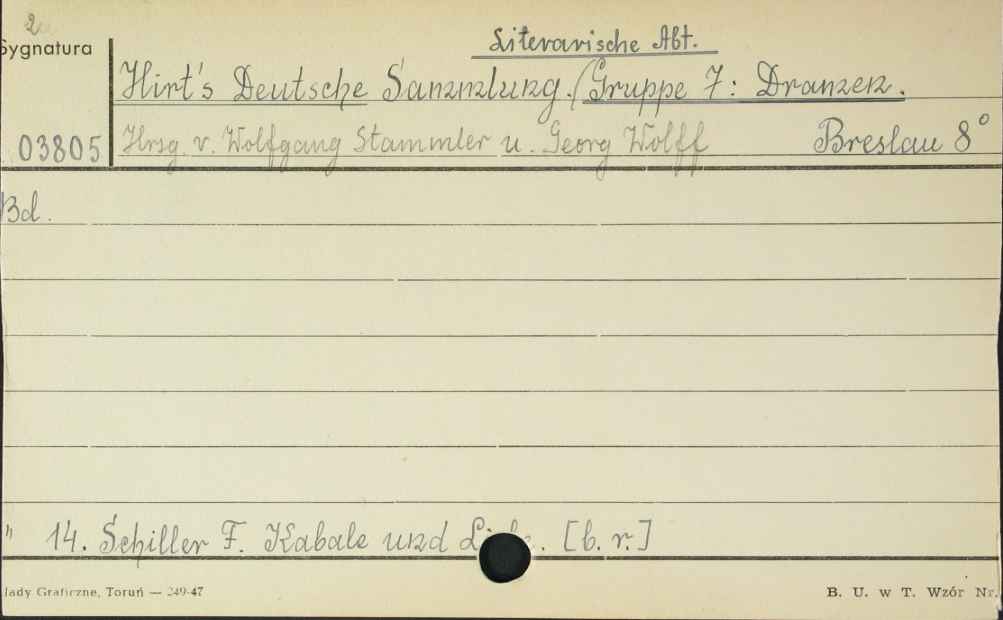 2
Sygnatura
Literarische Abt.
Hirt's Deutsche Sammlung. / Gruppe 7: Dramen.
03805
Hrsg. v. Wolfgang Stammler u. Georg Wolff Breslau 8°
Bd.
" 14. Schiller F. Kabale und Liebe. [b. r.]
łady Graficzne, Toruń — 249-47
B. U. w T. Wzór Nr.